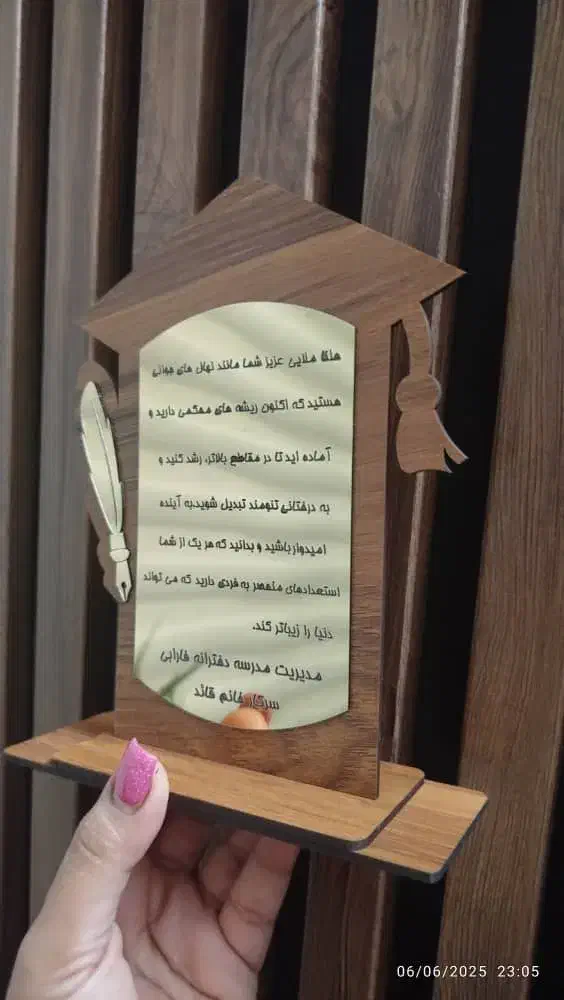 ملکا ملایی عزیز شما مانند نهال های جوانی
هستید که اکنون ریشه های محکمی دارید و
آماده اید تا در مقاطع بالاتر، رشد کنید و
به درختانی تنومند تبدیل شوید.به آینده
امیدوار باشید و بدانید که هر یک از شما
استعدادهای منحصر به فردی دارید که می تواند
دنیا را زیباتر کند.
مدیریت مدرسه دخترانه فارابی
سرکار خانم قائد
06/06/2025 23:05